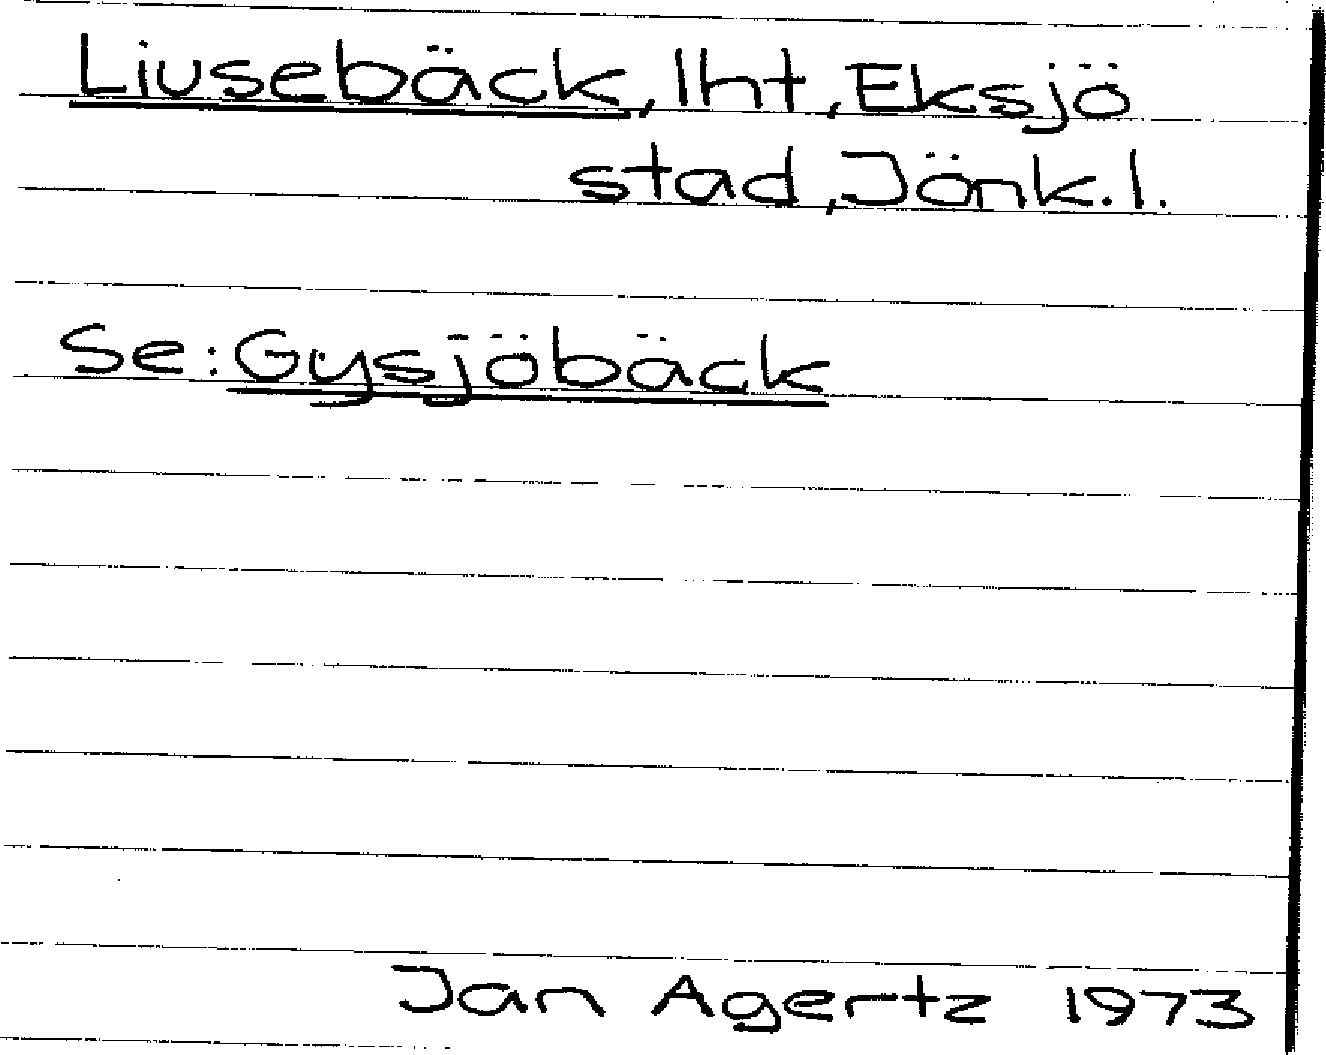 Liusebäck, lht, Eksjö
stad, Jönk.l.
Se: Gysjöbäck
Jan Agertz 1973